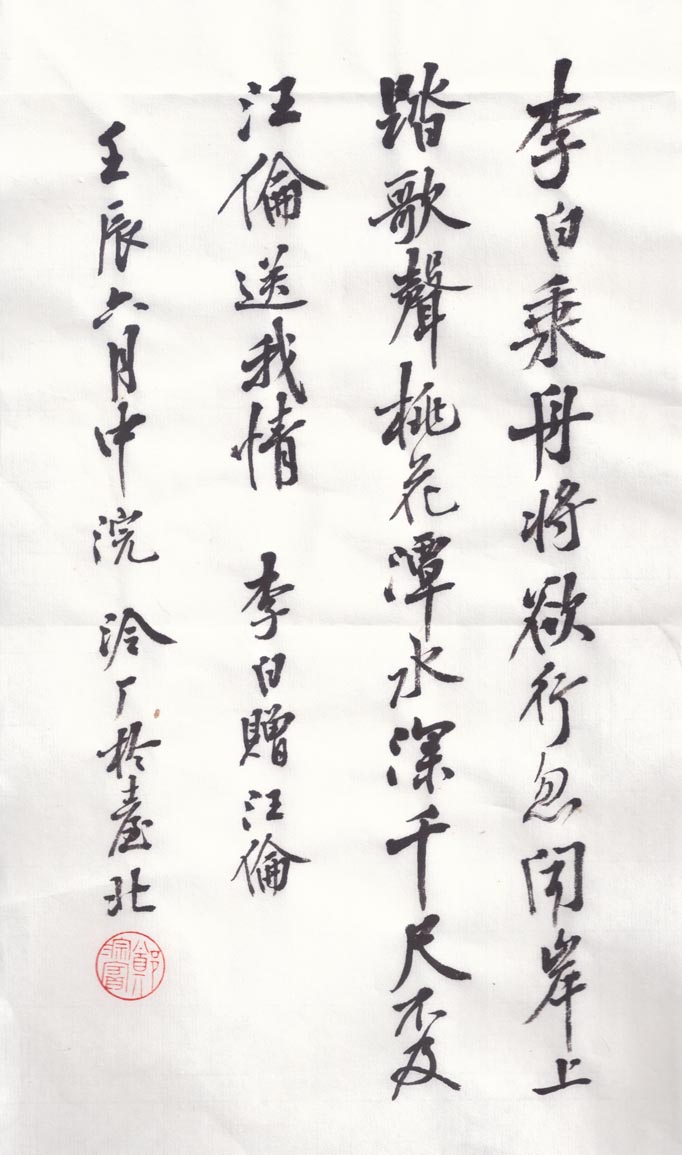 李白乘舟將欲行忽聞岸上
踏歌聲桃花潭水深千尺不及
汪倫送我情 李白贈汪倫
壬辰六月中浣 泠厂於臺北